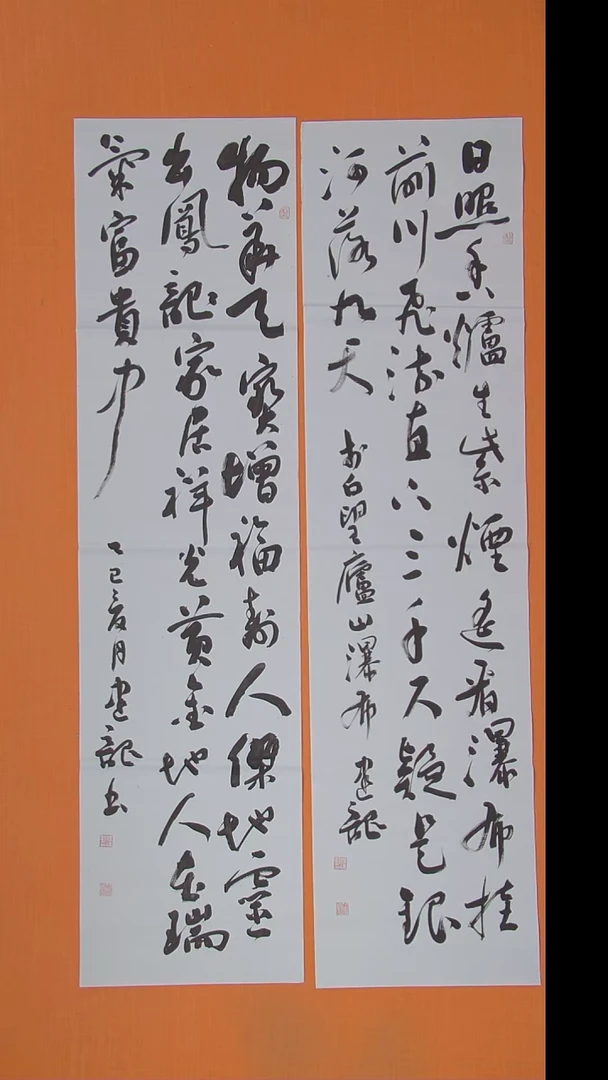 日照香爐生紫煙遙看瀑布挂
前川飛流直下三千尺疑是銀
河落九天
李白望廬山瀑布 建龍
物華天寶增福壽人傑地靈
出鳳龍家居祥光黃金地人在瑞
氣富貴中
乙巳亥月建龍書